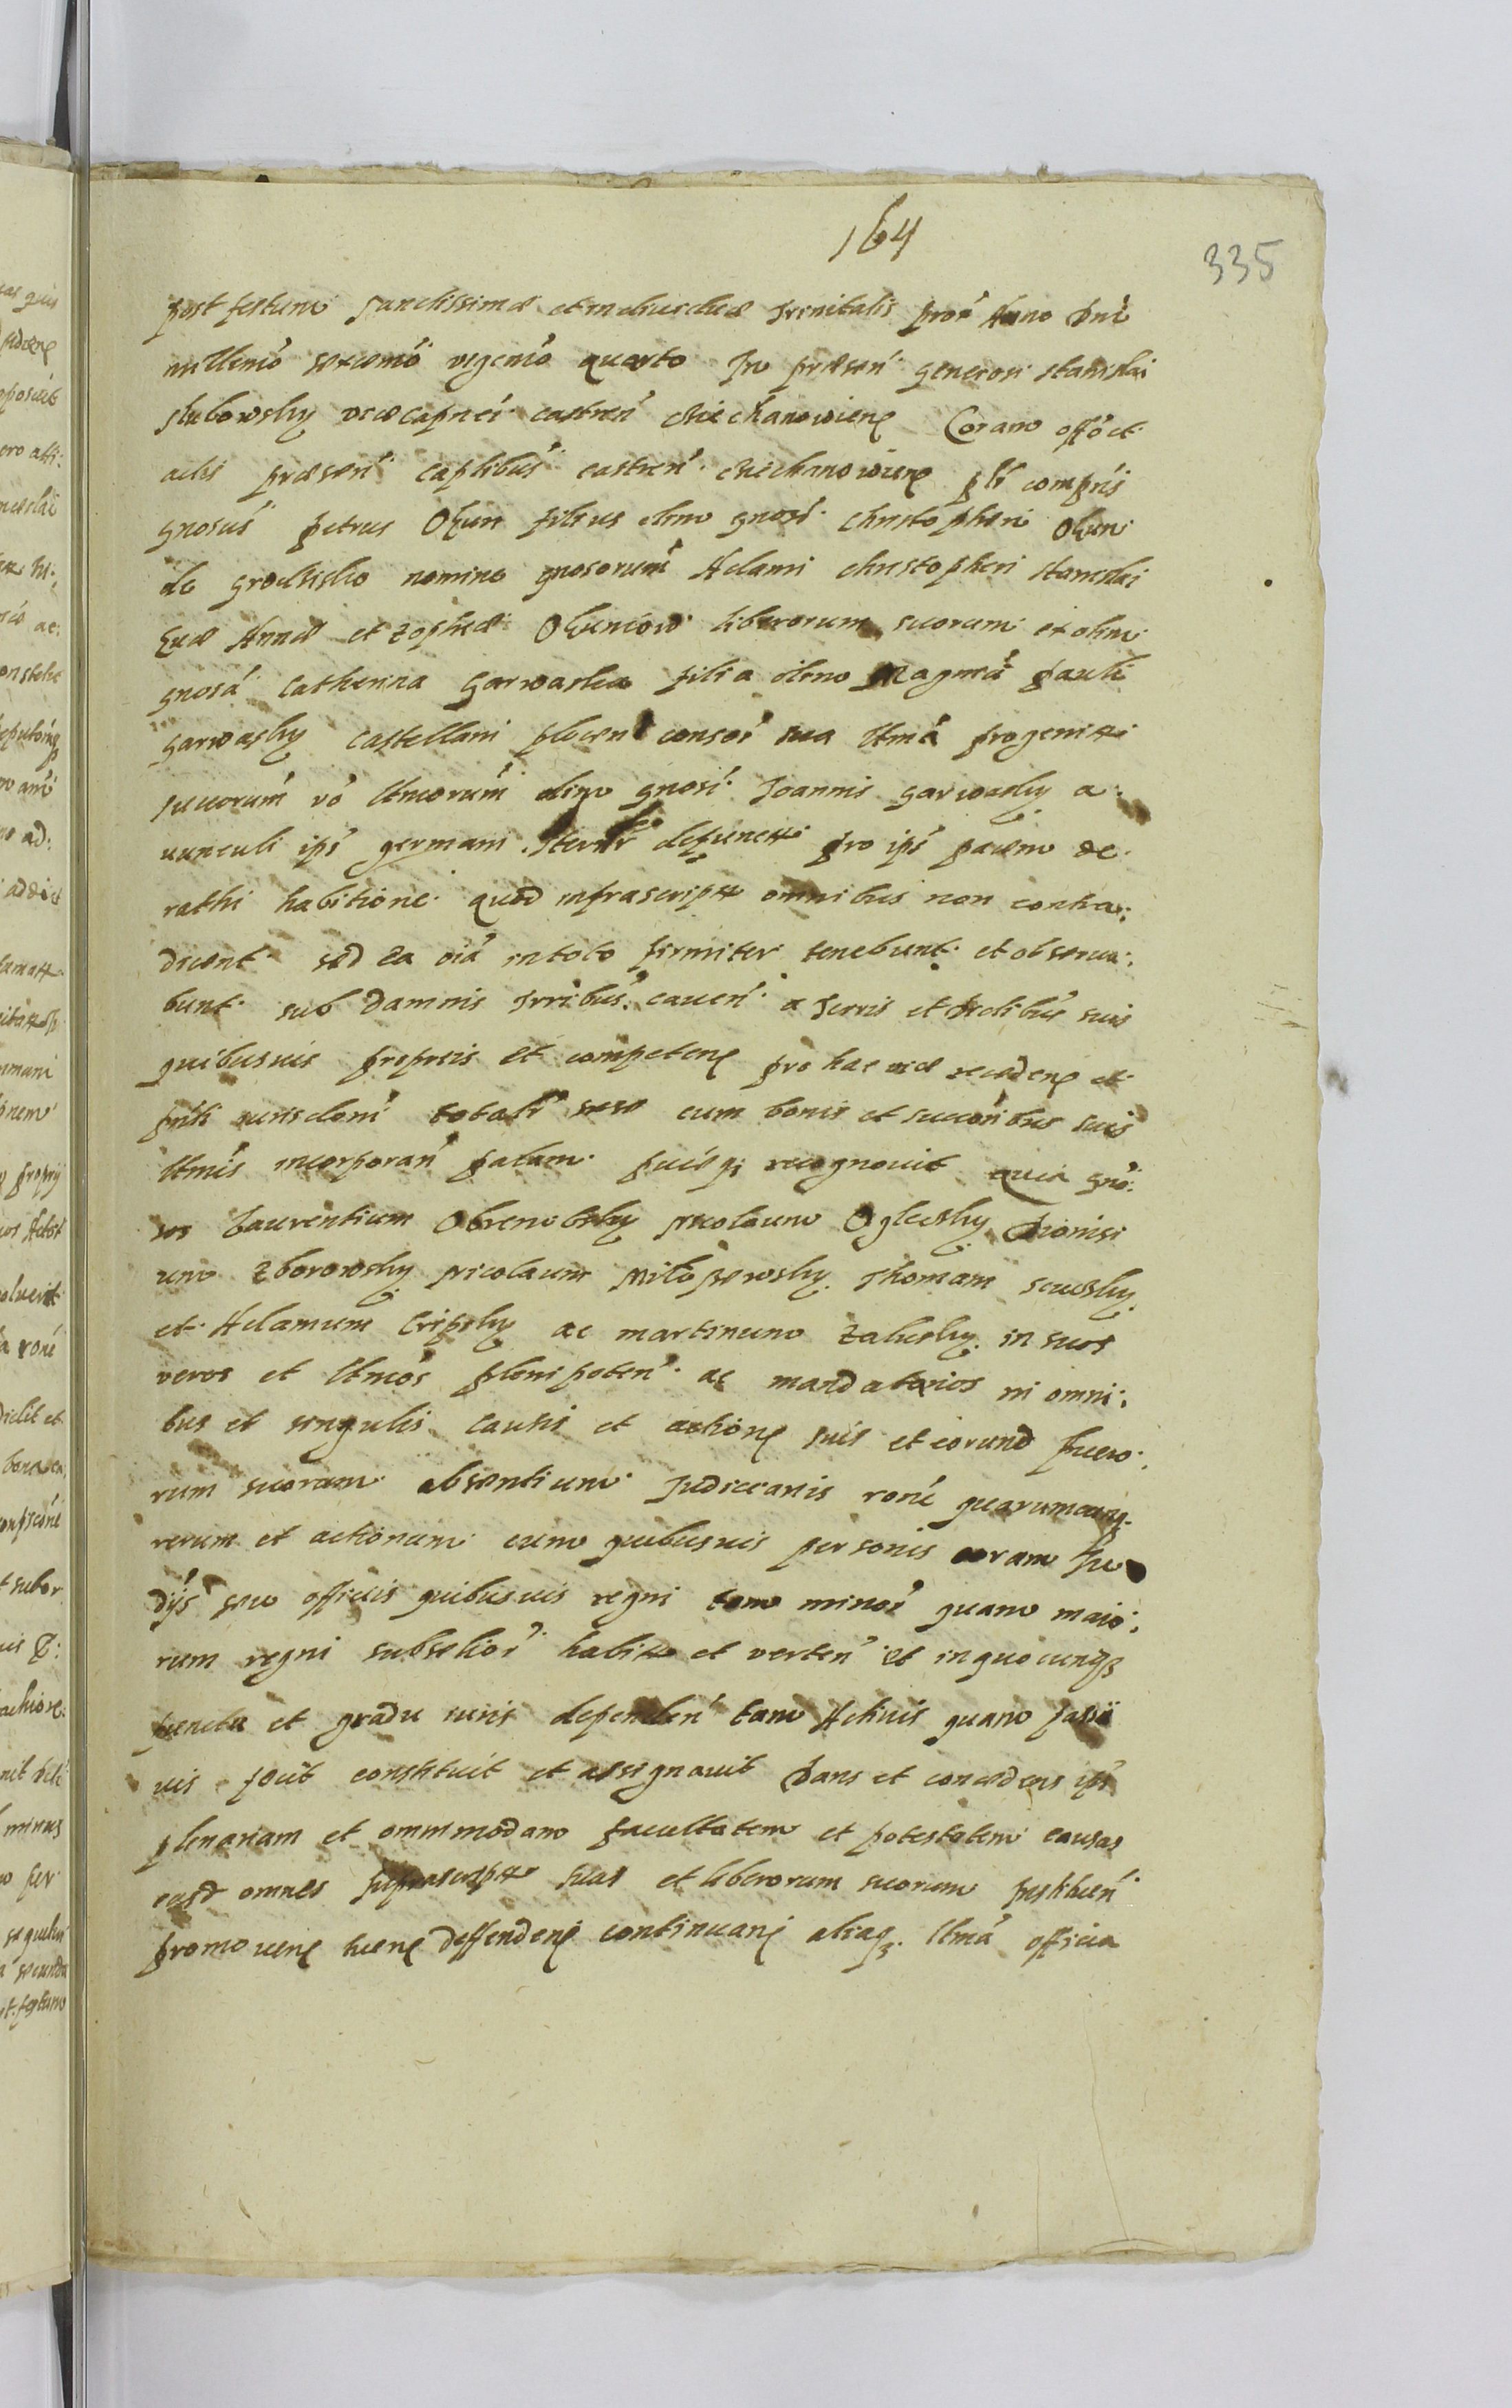 164
335
post festum Sanctissimæ et individuæ Trinitatis prox Anno Dni
millemo sexcmo vigemo quarto In præsen generosi Stanislai
Slubowsky vicecapnei castren Ciechanowien Coram offo et
actis præsen captlibus castren Ciechanowien plr comprns
gnosus Petrus Okun filius olim gnosi Christopheri Okun
de Grodzisko nomine gnosorum Adami Christopheri Stanislai
Evæ Annæ et Zophiæ Okuniow liberorum suorum ex olim
gnosa Catherina Garwaska filia olim Magnci Pauli
Garwasky Castellani plocen consor sua ltma progenitt
succorum vo ltmorum olim gnosi Joannis Garwasky a
vunculi ips germani steriler defuncti pro ips pacem de
rathi habitione quod infrascriptt omnibus non contra:
dicent sed ea oia in toto firmiter tenebunt et observa:
bunt sub damnis trribus caven a terris et distribus suis
quibusvis propriis et competen pro hac vice recedens et
pnti jurisdoni totalr sese cum bonis et succoribus suis
ltmis incorporan palam puceq recognovit Quia gno:
sos Laurentium Obrembsky Nicolaum Oglecky Dionisi
um Zborowsky Nicolaum Miloszewsky Thomam
et Adamum Cripsky ac Martinum Zalusky in suos
veros et ltmos plenipoten ac mandatarios in omni:
bus et singulis causis et actione suis et eorund puero:
rum suorum absentium Judiciariis rone quarumcunq
rerum et actionum cum quibusvis personis coram Ju
dijs seu officiis quibusvis regni tam minor quam maio:
rum regni subselior habitt et verten et in quocunq
puncto et gradu juris dependen tam Activis quam passi
vis fecit constituit et assignavit Dans et concedens ips
plenariam et omnimodam facultatem et potestatem causas
easd omnes suprascriptt suas et liberorum suorum
promoven tuen deffenden continuan aliaq ltma officia